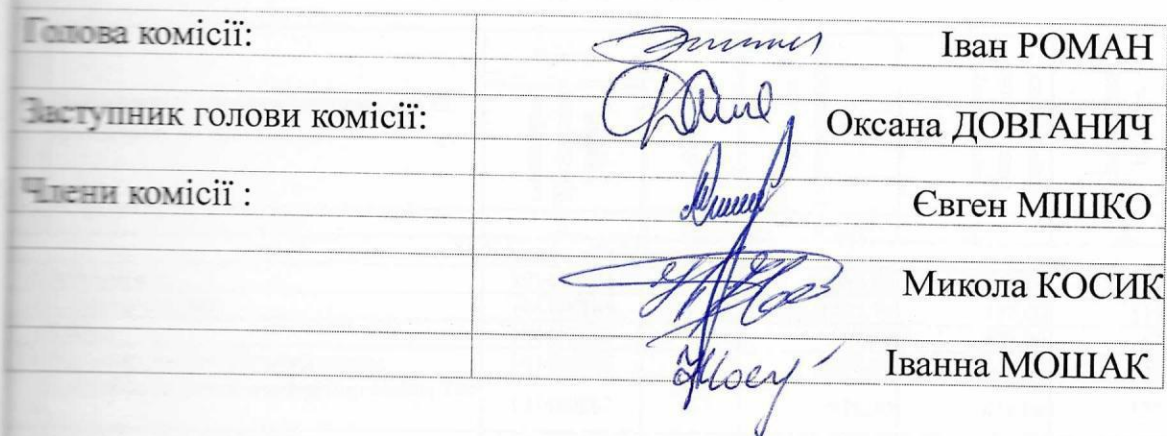 Голова комісії: Іван РОМАН
Заступник голови комісії: Оксана ДОВГАНИЧ
Члени комісії : Євген МІШКО
Микола КОСИК
Іванна МОШАК